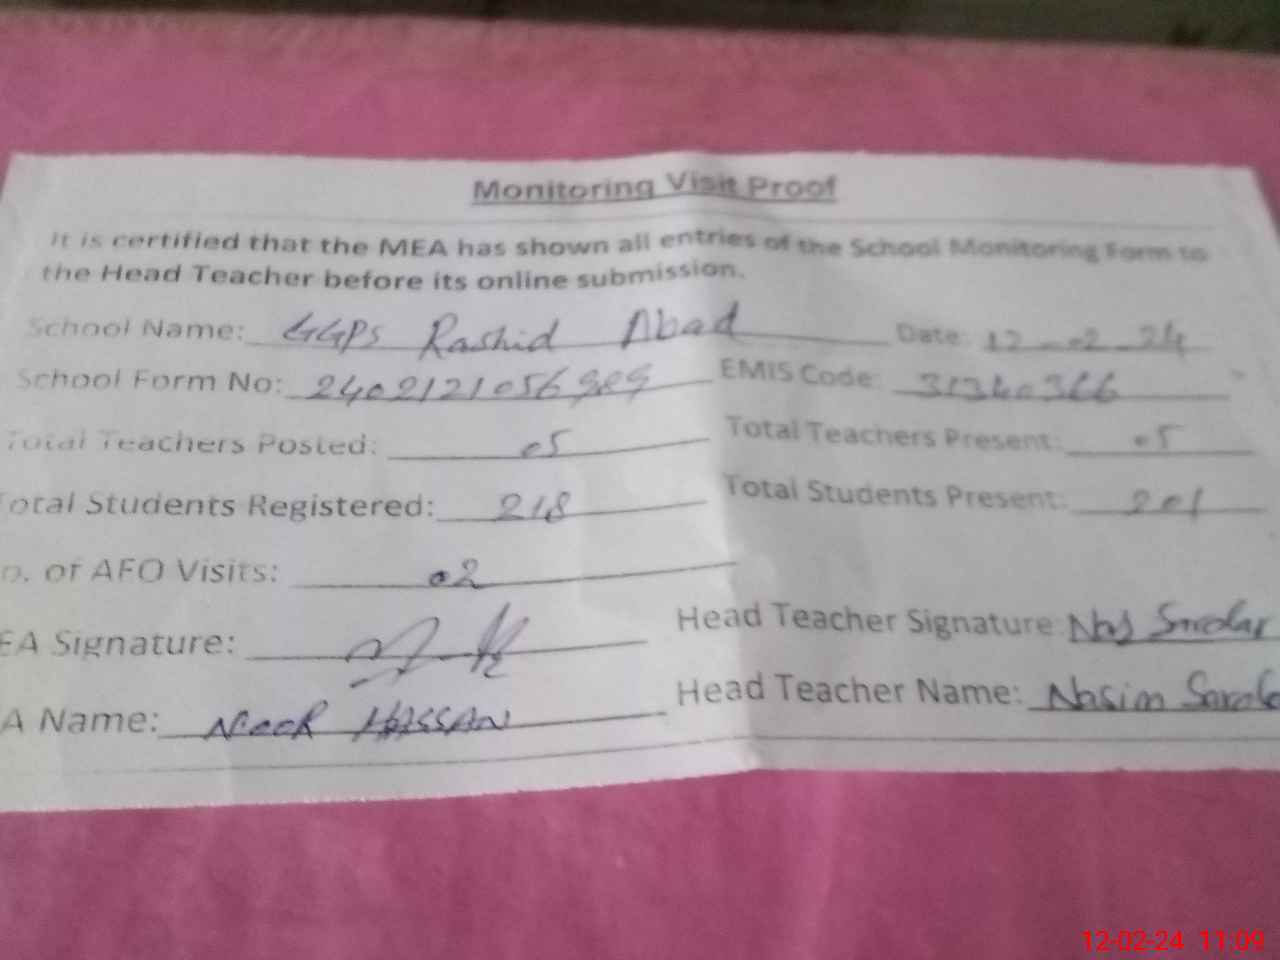 Monitoring Visit Proof
It is certified that the MEA has shown all entries of the School Monitoring Form to
the Head Teacher before its online submission.
School Name: GGPS Rashid Abad Date: 12-02-24
School Form No: EMIS Code: 31340366
Total Teachers Posted: 05 Total Teachers Present: 05
Total Students Registered: 218 Total Students Present: 201
o. of AFO Visits: 02
EA Signature: Head Teacher Signature:
A Name: HASSAN Head Teacher Name: Nasim
12-02-24 11:09